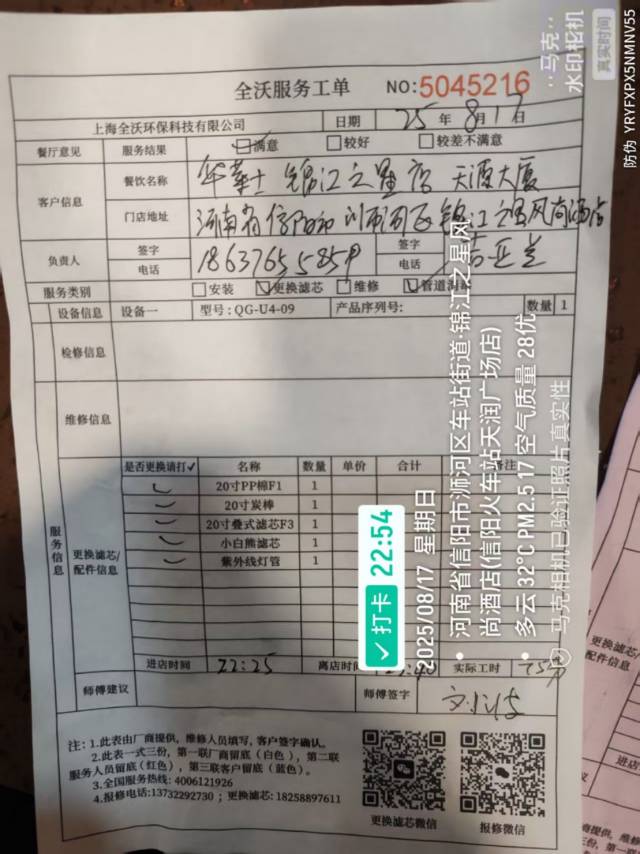 全沃服务工单 NO:5045216
上海全沃环保科技有限公司 日期 25 年 8 月 17 日
餐厅意见 服务结果 满意 较好 较差不满意
客户信息 餐饮名称 华莱士 锦江之星店 天润大厦
门店地址 河南省信阳市浉河区锦江之星风尚酒店
负责人 签字 签字
电话 电话
服务类别 安装 更换滤芯 维修 管道清洗
设备信息 设备一 型号:QG-U4-09 产品序列号: 数量 1
检修信息
维修信息
服务信息
更换滤芯/配件信息
是否更换请打✓ 名称 数量 单价 合计 备注
20寸PP棉F1 1
20寸炭棒 1
20寸叠式滤芯F3 1
小白熊滤芯 1
紫外线灯管 1
进店时间 22:25 离店时间 实际工时
师傅建议 师傅签字
注:1.此表由厂商提供,维修人员填写,客户签字确认。
2.此表一式三份,第一联厂商留底(白色),第二联
服务人员留底(红色),第三联客户留底(蓝色)。
3.全国服务热线:4006121926
4.报修电话:13732292730;更换滤芯:18258897611
更换滤芯微信 报修微信
打卡 22:54
2025/08/17 星期日
河南省信阳市浉河区车站街道·锦江之星风
尚酒店(信阳火车站天润广场店)
多云 32°C PM2.5 17 空气质量 28优
马克相机已验证照片真实性
马克
水印相机
真实时间
防伪 YRYFXPX5NMNV55
更换滤芯/
配件信息